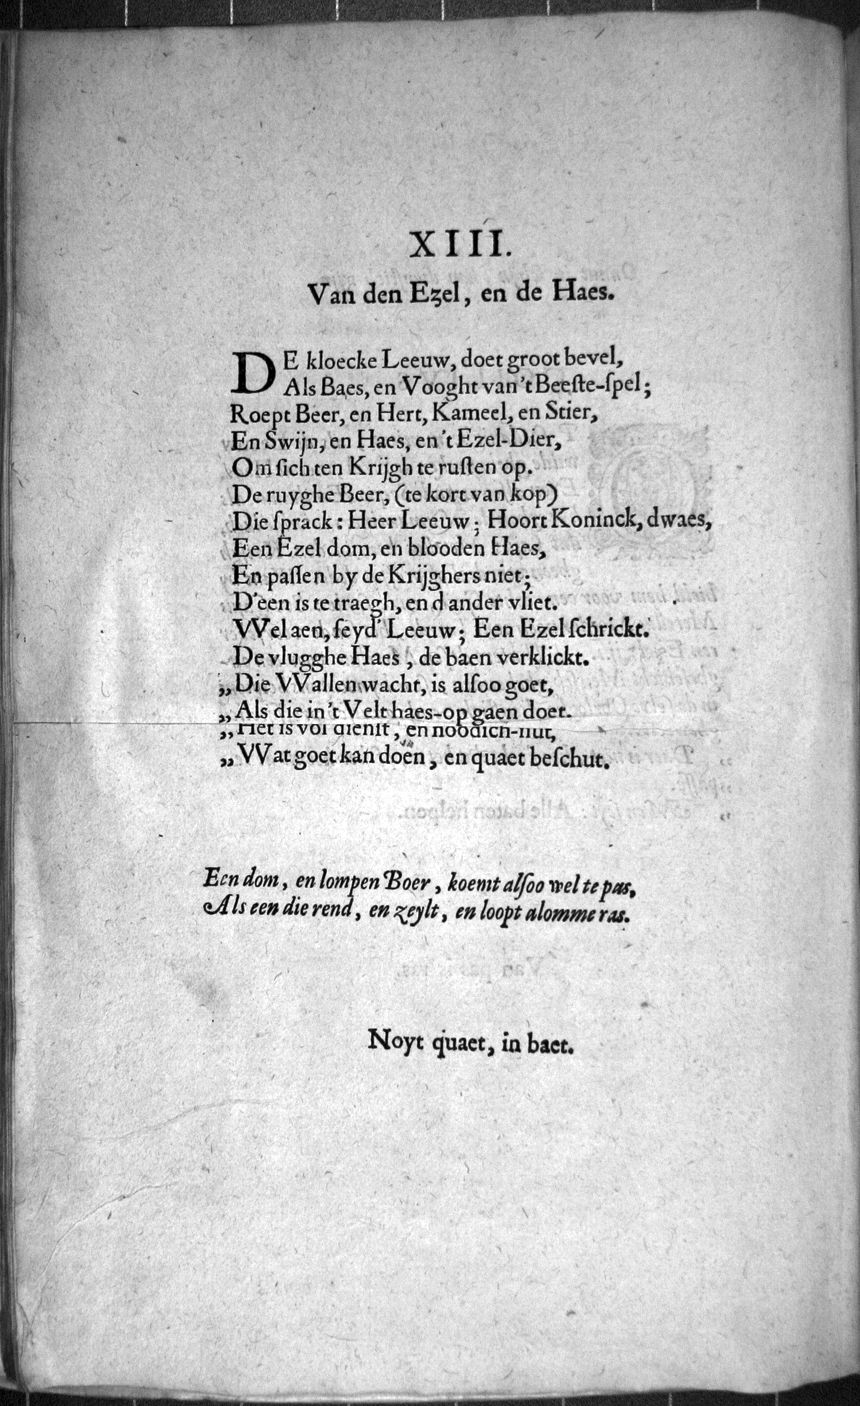 XIII.
Van den Ezel, en de Haes.
DE kloecke Leeuw, doet groot bevel,
Als Baes, en Vooght van 't Beeste-spel;
Roept Beer, en Hert, Kameel, en Stier,
En Swijn, en Haes, en 't Ezel-Dier,
Om sich ten Krijgh te rusten op.
De ruyghe Beer, (te kort van kop)
Die sprack: Heer Leeuw; Hoort Koninck, dwaes,
Een Ezel dom, en blooden Haes,
En passen by de Krijghers niet;
D'een is te traegh, en d ander vliet.
VVel aen, seyd' Leeuw; Een Ezel schrickt.
De vlugghe Haes, de baen verklickt.
„Die VVallen wacht, is alsoo goet,
„Als die in 't Velt haes-op gaen doet.
„Het is vol dienst, en noodich-nut,
„VVat goet kan doen, en quaet beschut.
Een dom, en lompen Boer, koemt alsoo wel te pas,
Als een die rend, en zeylt, en loopt alomme ras.
Noyt quaet, in baet.